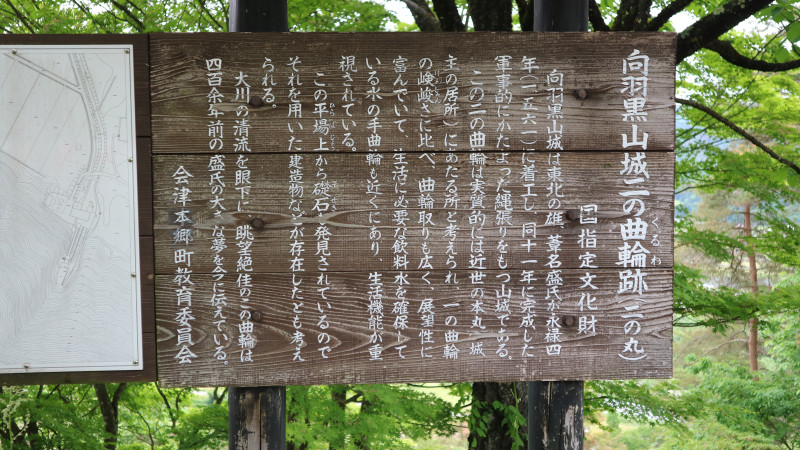 向羽黒山城二の曲輪跡(二の丸)
くるわ
国指定文化財
向羽黒山城は東北の雄、葦名盛氏が永禄四
年(一五六一)に着工し、同十一年に完成した
軍事的にかたよった縄張りをもつ山城である。
この二の曲輪は実質的には近世の本丸(城
主の居所)にあたる所と考えられ、一の曲輪
の峻嶮さに比べ、曲輪取りも広く、展望性に
富んでいて、生活に必要な飲料水を確保して
いる水の手曲輪も近くにあり、生活機能が重
視されている。
この平場上から礎石が発見されているので
それを用いた建造物などが存在したとも考え
られる。
大川の清流を眼下に、眺望絶佳のこの曲輪は
四百余年前の盛氏の大きな夢を今に伝えている。
会津本郷町教育委員会